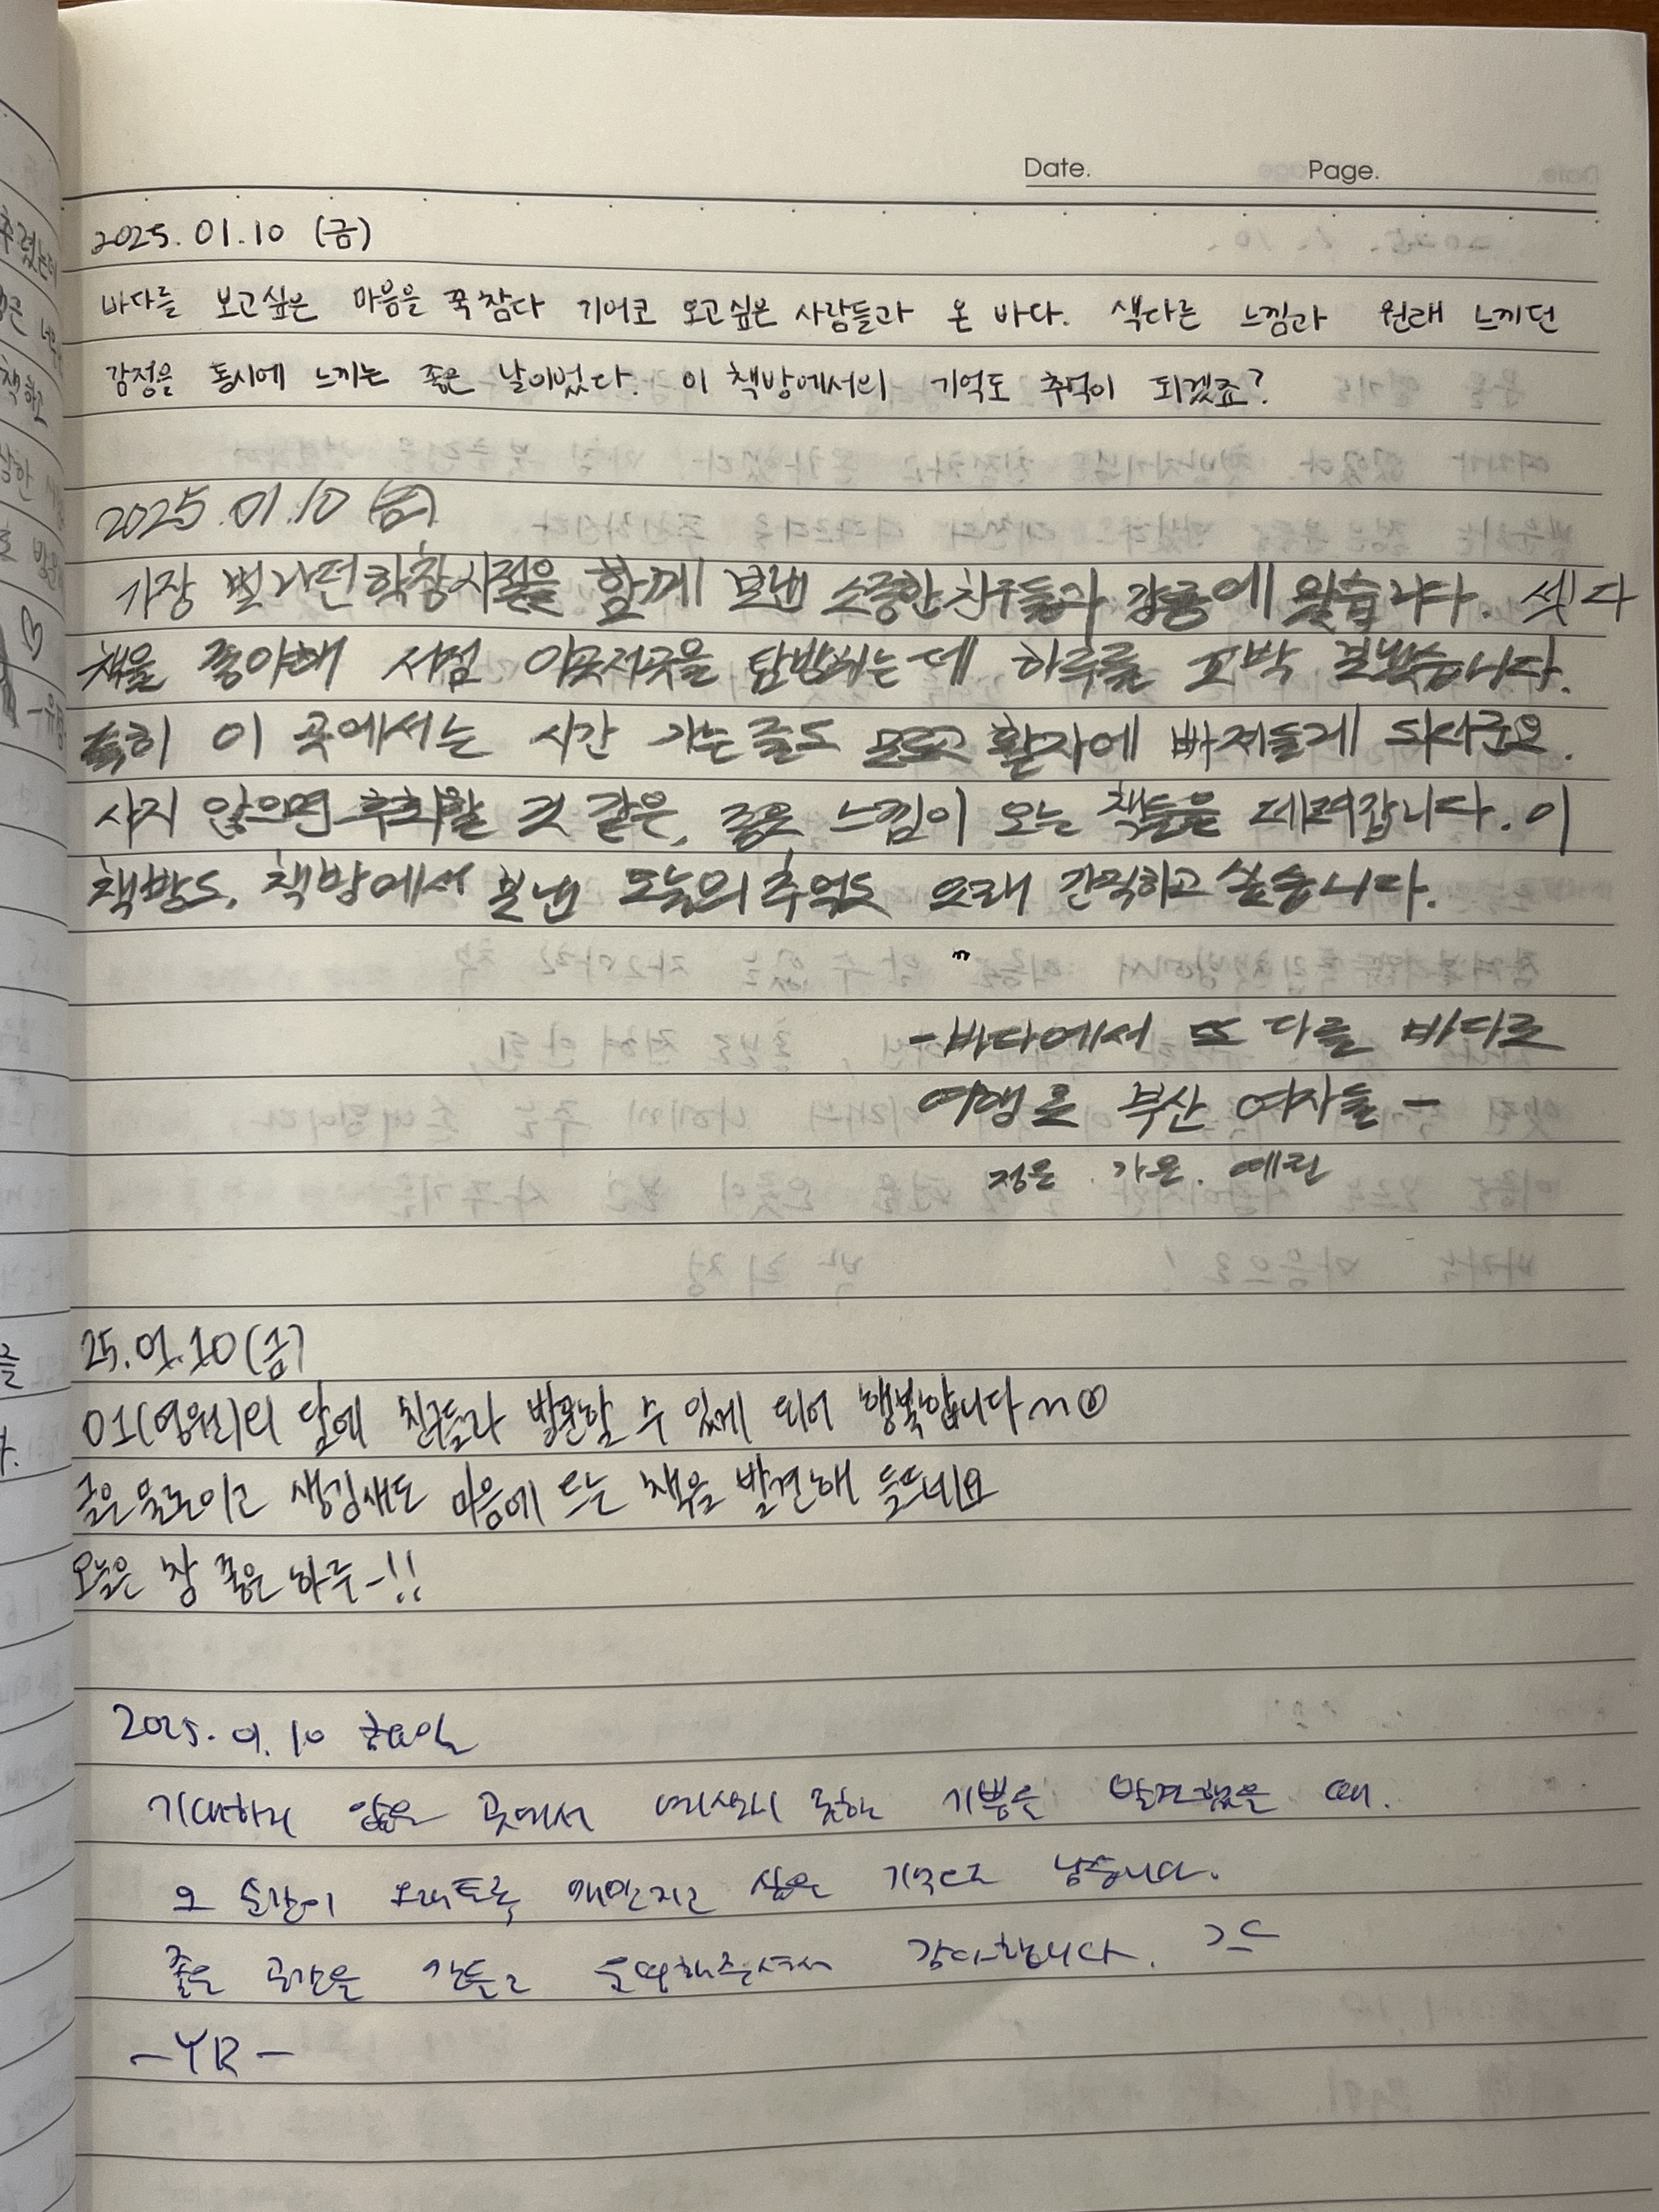 Date. Page.
2025.01.10 (금)
바다를 보고싶은 마음을 꾹참다 기어코 오고싶은 사람들과 온 바다. 색다른 느낌과 원래 느끼던
감정을 동시에 느끼는 좋은 날이었다. 이 책방에서의 기억도 추억이 되겠죠?
2025.01.10 (금)
가장 빛나던 학창시절을 함께 보낸 소중한 친구들과 강릉에 왔습니다. 셋 다
책을 좋아해 서점 이곳저곳을 답방하는데 하루를 꼬박 보냈습니다.
특히 이 곳에서는 시간 가는줄도 모르고 활자에 빠져들게 되더군요.
사지 않으면 후회할 것 같은, 좋은 느낌이 오는 책들을 데려갑니다. 이
책방도, 책방에서 보낸 오늘의 추억도 오래 간직하고 싶습니다.
-바다에서 또 다른 바다로
여행 온 부산 여자들-
정은. 가은. 예린
25.01.10(금)
01(영원)의 달에 친구들과 방문할 수 있게 되어 행복합니다~
글은 물론이고 생김새도 마음에 드는 책을 발견해 들뜨네요
오늘은 참 좋은 하루-!!
2025.01.10 금요일
기대하지 않은 곳에서 예상치 못한 기쁨을 발견했을 때.
그 순간이 오래토록 매만지고 싶은 기억으로 남습니다.
좋은 공간을 만들고 운영해주셔서 감사합니다.
-YR-